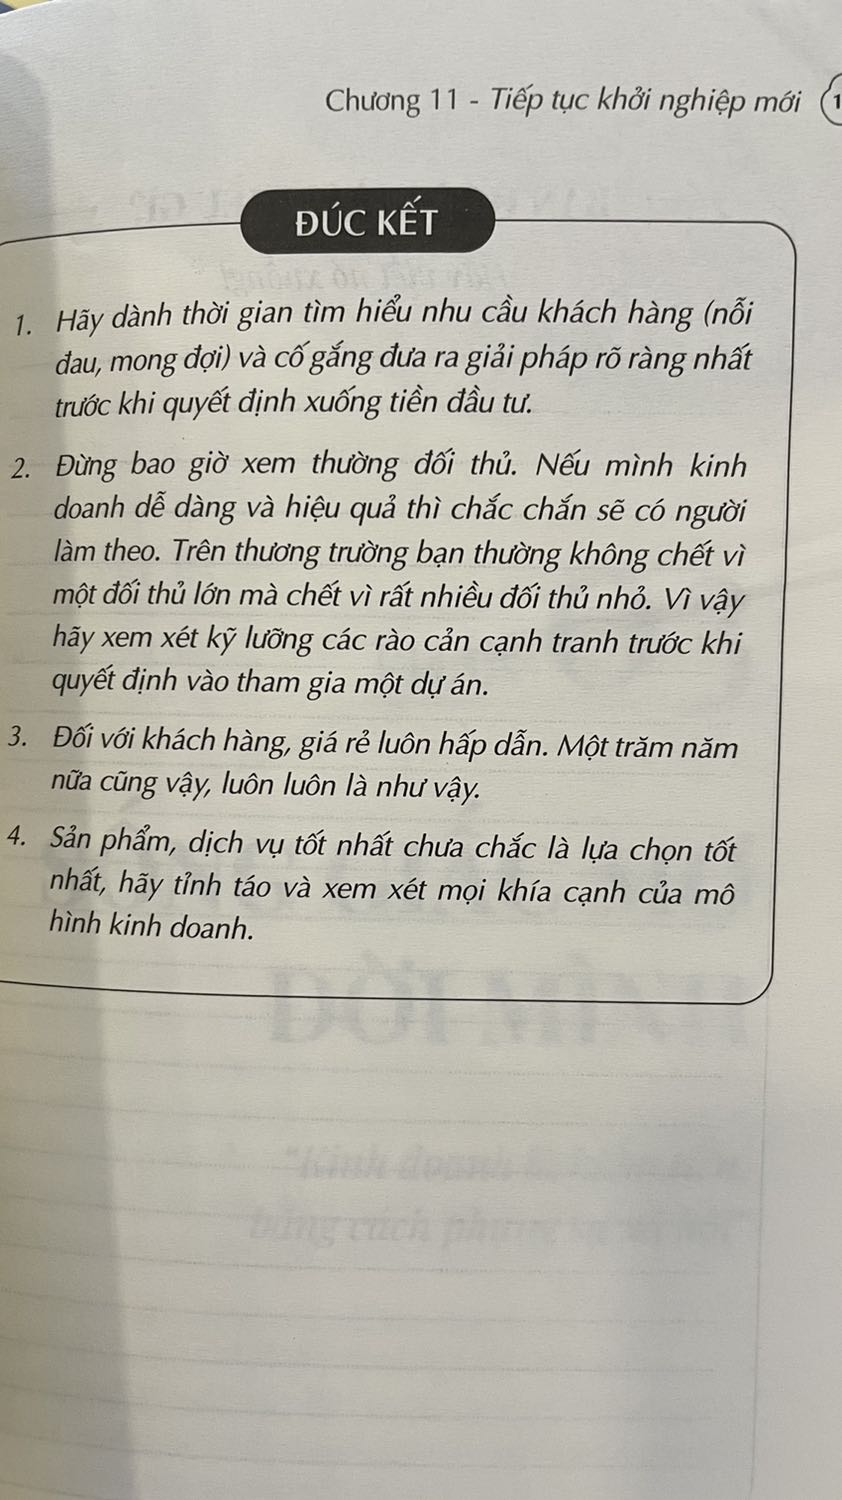 Chương 11 - Tiếp tục khởi nghiệp mới
ĐÚC KẾT
1. Hãy dành thời gian tìm hiểu nhu cầu khách hàng (nỗi
đau, mong đợi) và cố gắng đưa ra giải pháp rõ ràng nhất
trước khi quyết định xuống tiền đầu tư.
2. Đừng bao giờ xem thường đối thủ. Nếu mình kinh
doanh dễ dàng và hiệu quả thì chắc chắn sẽ có người
làm theo. Trên thương trường bạn thường không chết vì
một đối thủ lớn mà chết vì rất nhiều đối thủ nhỏ. Vì vậy
hãy xem xét kỹ lưỡng các rào cản cạnh tranh trước khi
quyết định vào tham gia một dự án.
3. Đối với khách hàng, giá rẻ luôn hấp dẫn. Một trăm năm
nữa cũng vậy, luôn luôn là như vậy.
4. Sản phẩm, dịch vụ tốt nhất chưa chắc là lựa chọn tốt
nhất, hãy tỉnh táo và xem xét mọi khía cạnh của mô
hình kinh doanh.